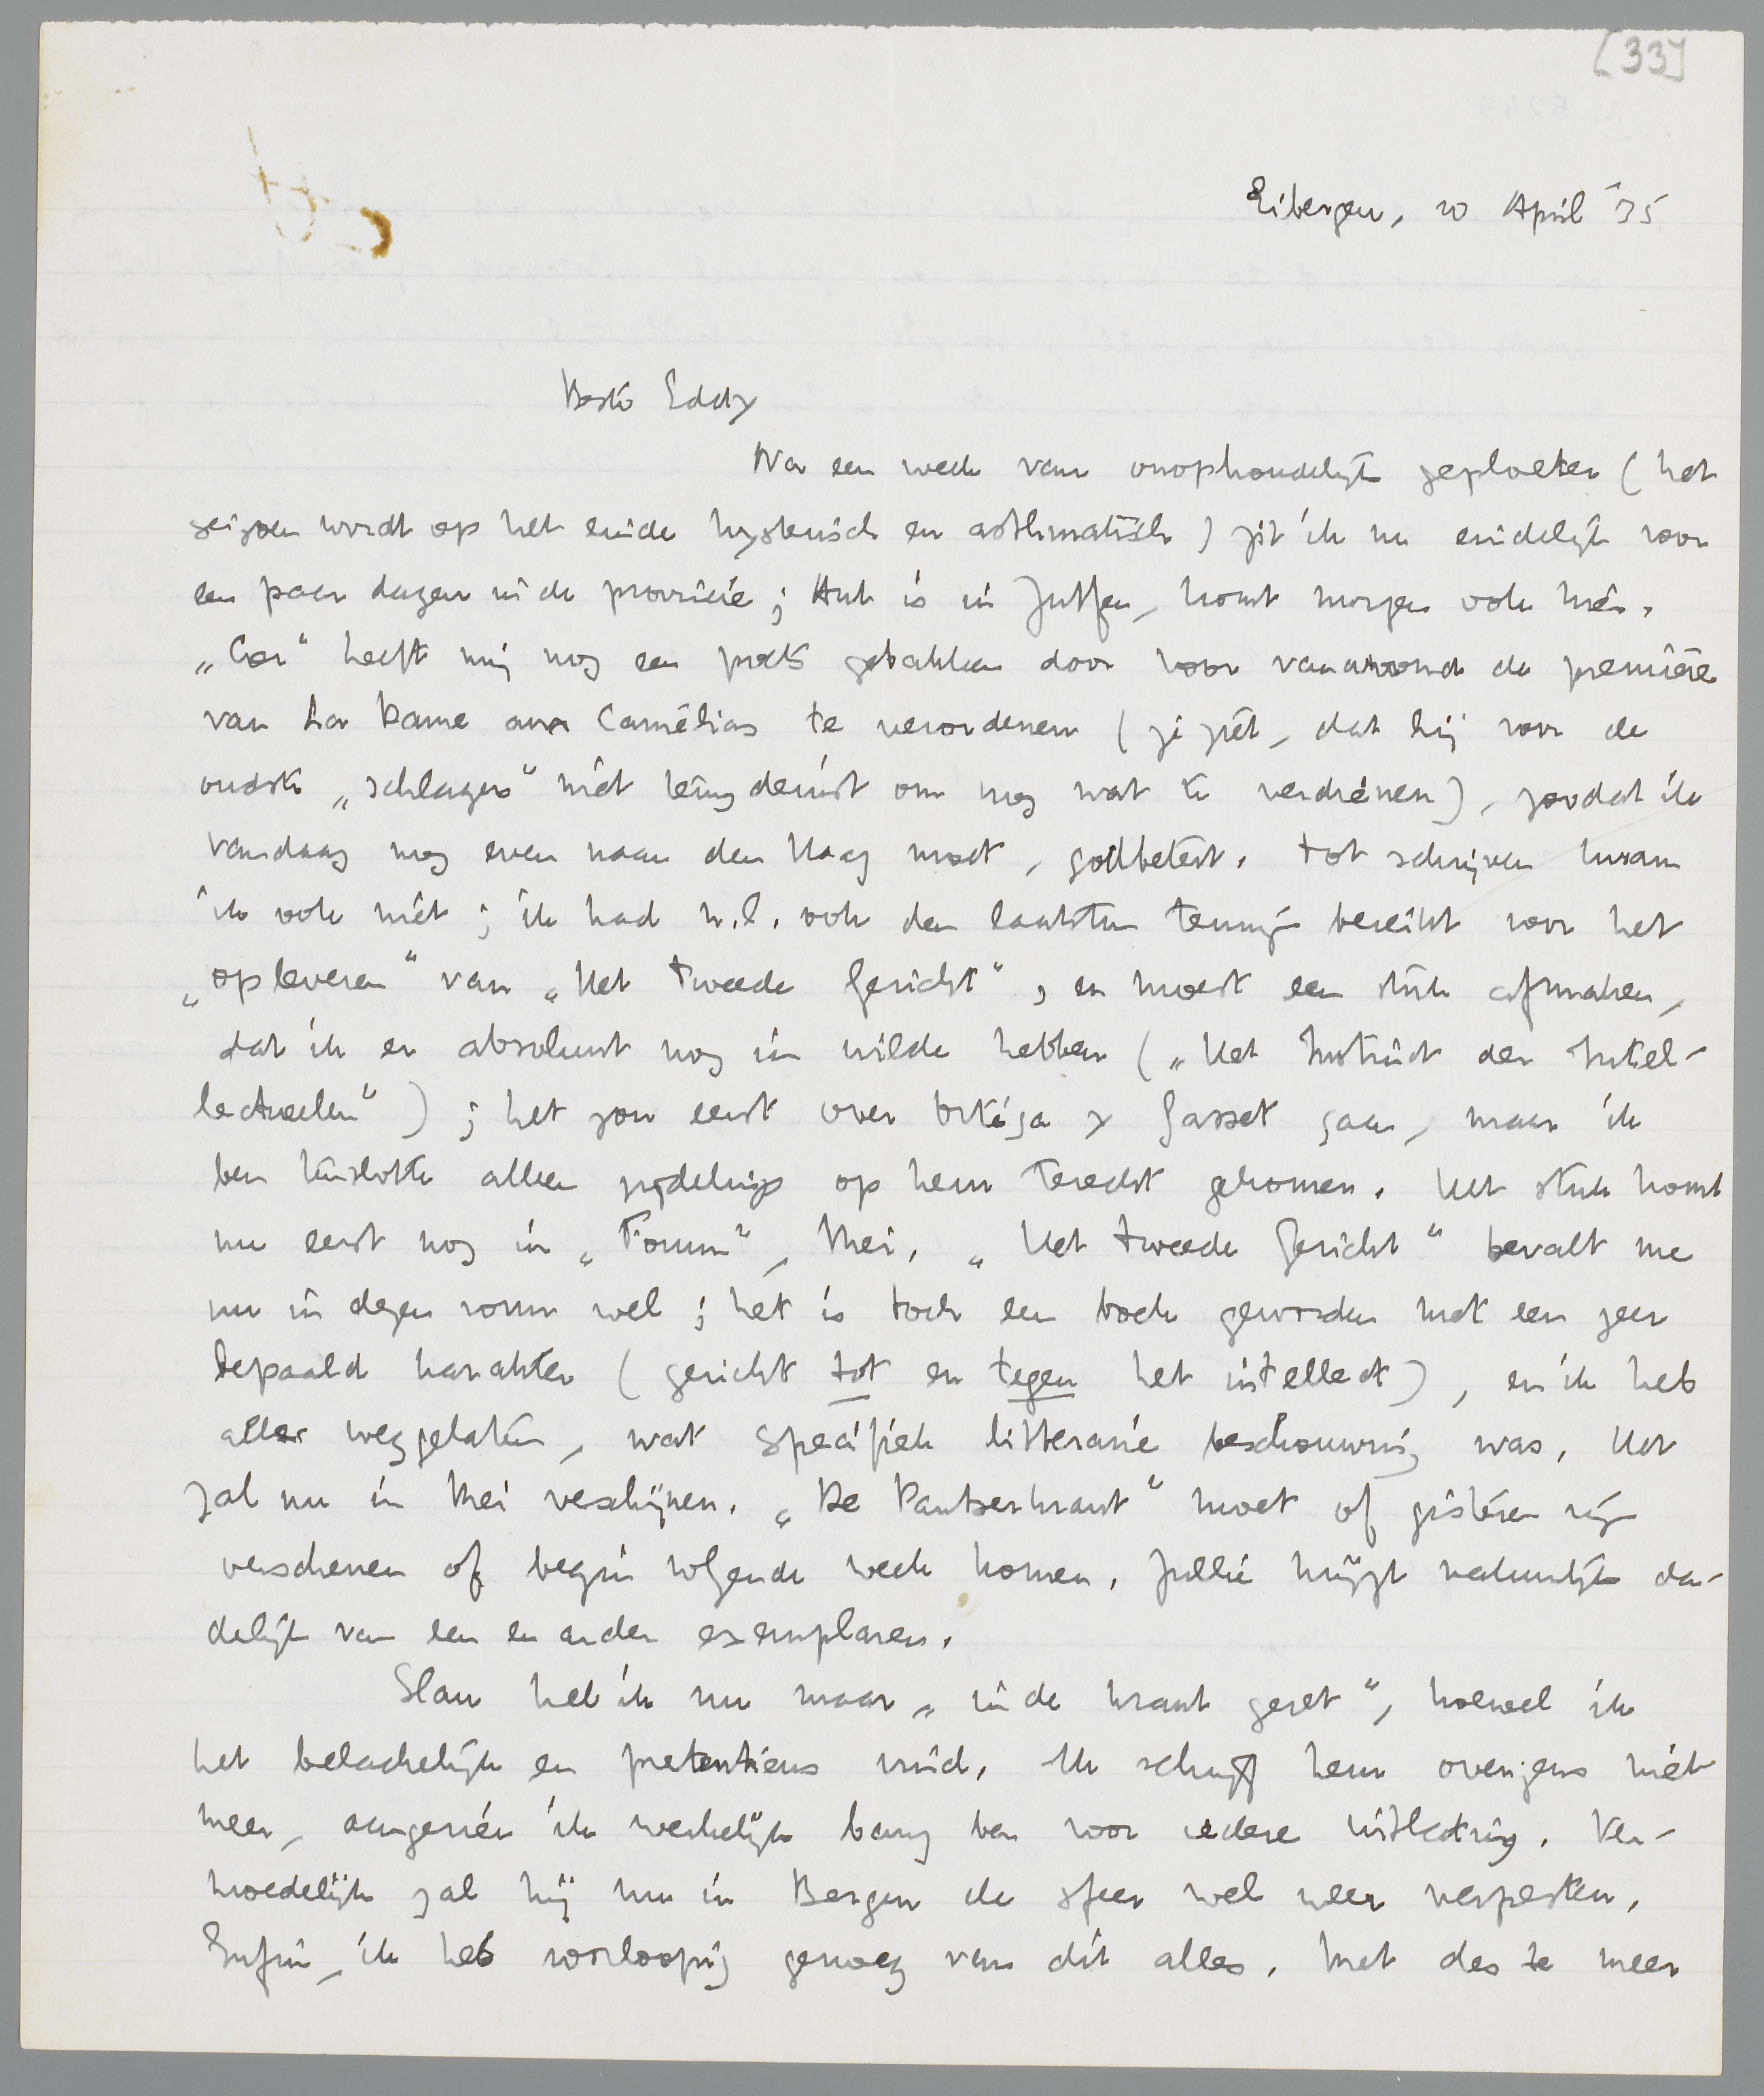 [33]
Eibergen, 20 April '35
Beste Eddy
Na een week van onophoudelijk geploeter (het
seizoen wordt op het einde hysterisch en asthmatisch) zit ik nu eindelijk voor
een paar dagen in de provincie; Ant is in Zutfen, komt morgen ook hier.
„Cor" heeft mij nog een poets gebakken door voor vanavond de première
van La Dame aux Camélias te verordenen (je ziet, dat hij voor de
oudste „schlagers" niet terugdeinst om nog wat te verdienen), zoodat ik
vandaag nog even naar den Haag moet, godbetert. Tot schrijven kwam
ik ook niet; ik had n.l. ook den laatsten termijn bereikt voor het
„opleveren" van „Het Tweede Gezicht", en moest een stuk afmaken,
dat ik er absoluut nog in wilde hebben („Het Instinct der Intel-
lectueelen"); het zou eerst over Ortega y Gasset gaan, maar ik
ben tenslotte alleen zijdelings op hem terecht gekomen. Het stuk komt
nu eerst nog in „Forum", Mei. „Het Tweede Gezicht" bevalt me
nu in dezen vorm wel; het is toch een boek geworden met een zeer
bepaald karakter (gericht tot en tegen het intellect), en ik heb
alles weggelaten, wat specifiek litteraire beschouwing was. Het
zal nu in Mei verschijnen. „De Pantserkrant" moet of gisteren zijn
verschenen of begin volgende week komen. Jullie krijgt natuurlijk da-
delijk van een en ander exemplaren.
Slau heb ik nu maar „in de krant gezet", hoewel ik
het belachelijk en pretentieus vind. Ik schrijf hem overigens niet
meer, aangezien ik werkelijk bang ben voor iedere uitlating. Ver-
moedelijk zal hij nu in Bergen de sfeer wel weer verpesten.
Enfin, ik heb voorloopig genoeg van dit alles. Met des te meer